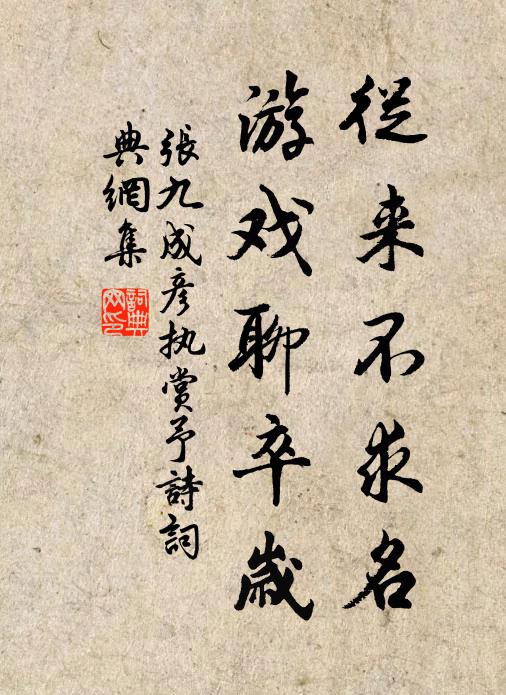 從来不求名
游戏聊卒歳
張九成彦执賞予詩詞
典網集
詞典
网印